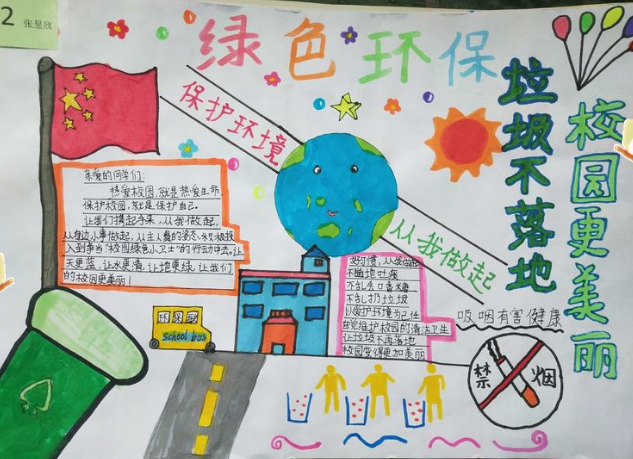 2
张昱欣
绿色环保
保护环境
从我做起
垃圾不落地
校园更美丽
亲爱的同学们:
热爱校园,就是热爱生命,
保护校园,就是保护自己。
让我们携起手来,从我做起,
从身边小事做起,从主人翁的姿态,积极投
入到争当“校园绿色小卫士”的行动中去。让
天更蓝,让水更清,让地更绿,让我们
的校园更美丽!
好习惯,从我做起
不随地吐痰
不乱丢口香糖
不乱扔垃圾
以爱护环境为己任
自觉维护校园的清洁卫生
让垃圾不再落地
校园变得更加美丽
吸烟有害健康
禁烟
school bus